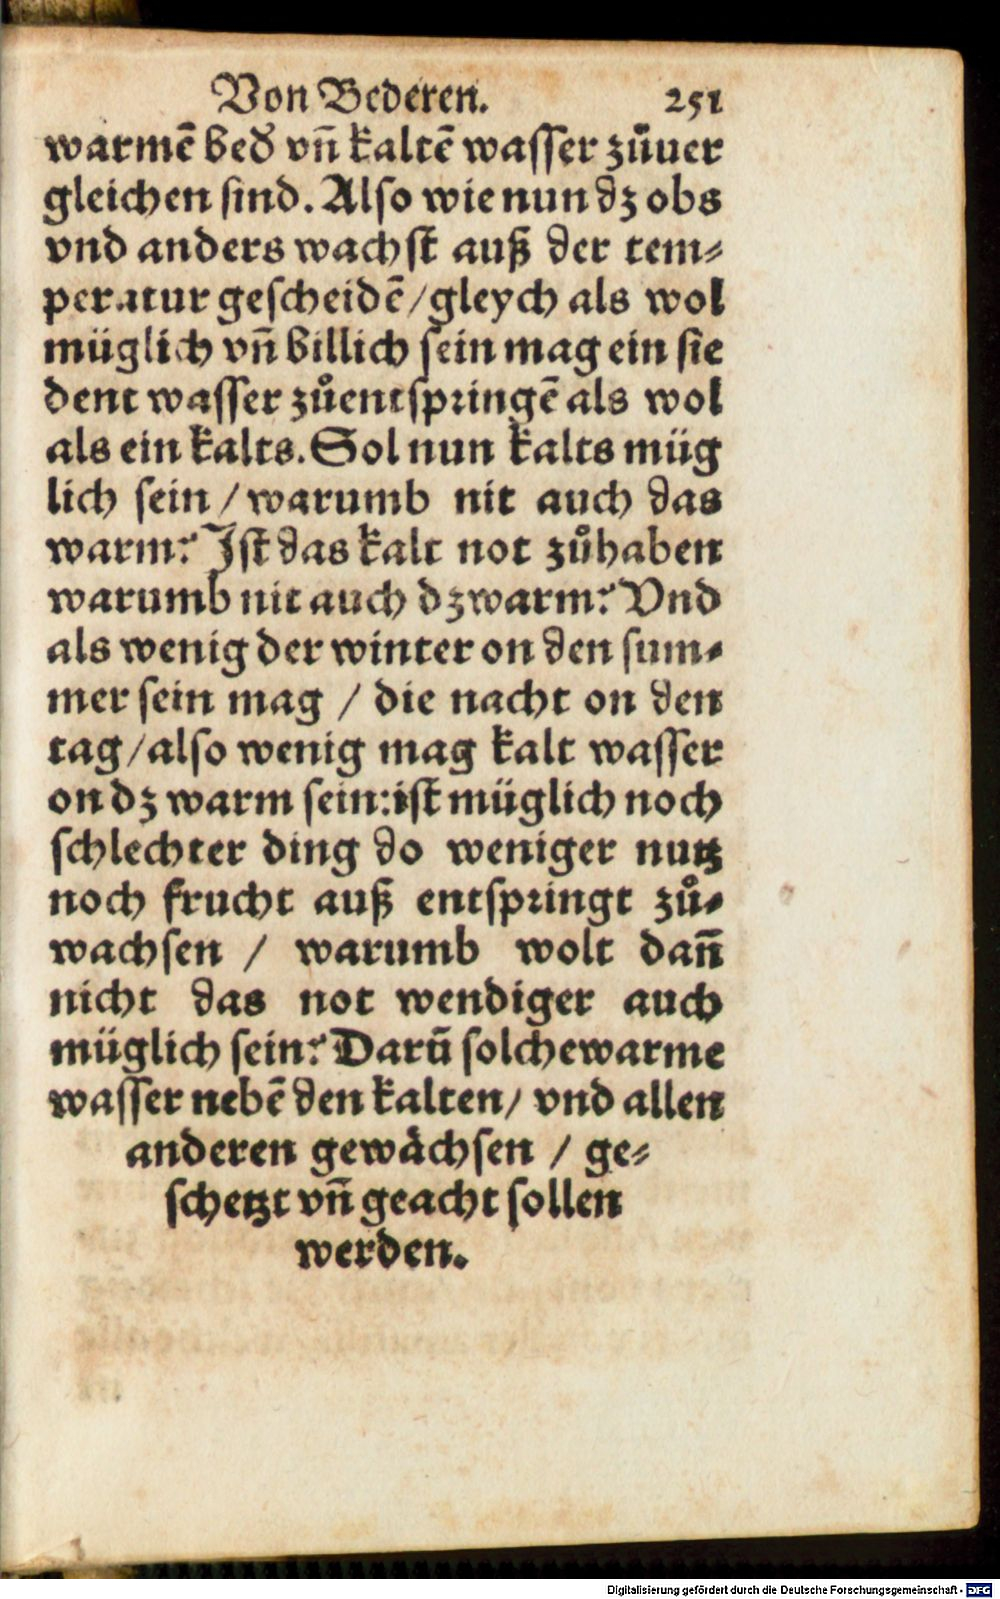 Von Bederen. 251
warmē bed vñ kaltē wasser zůuer
gleichen sind. Also wie nun dz obs
vnd anders wachst auß der tem⸗
peratur gescheidē/gleych als wol
müglich vñ billich sein mag ein sie
dent wasser zůentspringē als wol
als ein kalts. Sol nun kalts müg
lich sein/warumb nit auch das
warm? Ist das kalt not zůhaben
warumb nit auch dz warm? Vnd
als wenig der winter on den sum⸗
mer sein mag / die nacht on den
tag/also wenig mag kalt wasser
on dz warm sein:ist müglich noch
schlechter ding do weniger nutz
noch frucht auß entspringt zů⸗
wachsen / warumb wolt dañ
nicht das not wendiger auch
müglich sein? Darū solche warme
wasser nebē den kalten/ vnd allen
anderen gewächsen / ge⸗
schetzt vñ geacht sollen
werden.
Digitalisierung gefördert durch die Deutsche Forschungsgemeinschaft - DFG